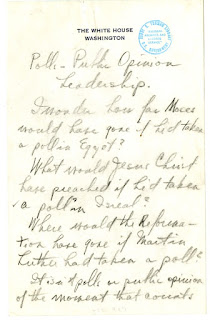 THE WHITE HOUSE
WASHINGTON
Polls - Public Opinion
Leadership.
I wonder how far Moses
would have gone if he'd taken
a poll in Egypt?
What would Jesus Christ
have preached if he'd taken
a poll in Israel?
Where would the Reforma-
tion have gone if Martin
Luther had taken a poll?
It isn't polls or public opinion
of the moment that counts